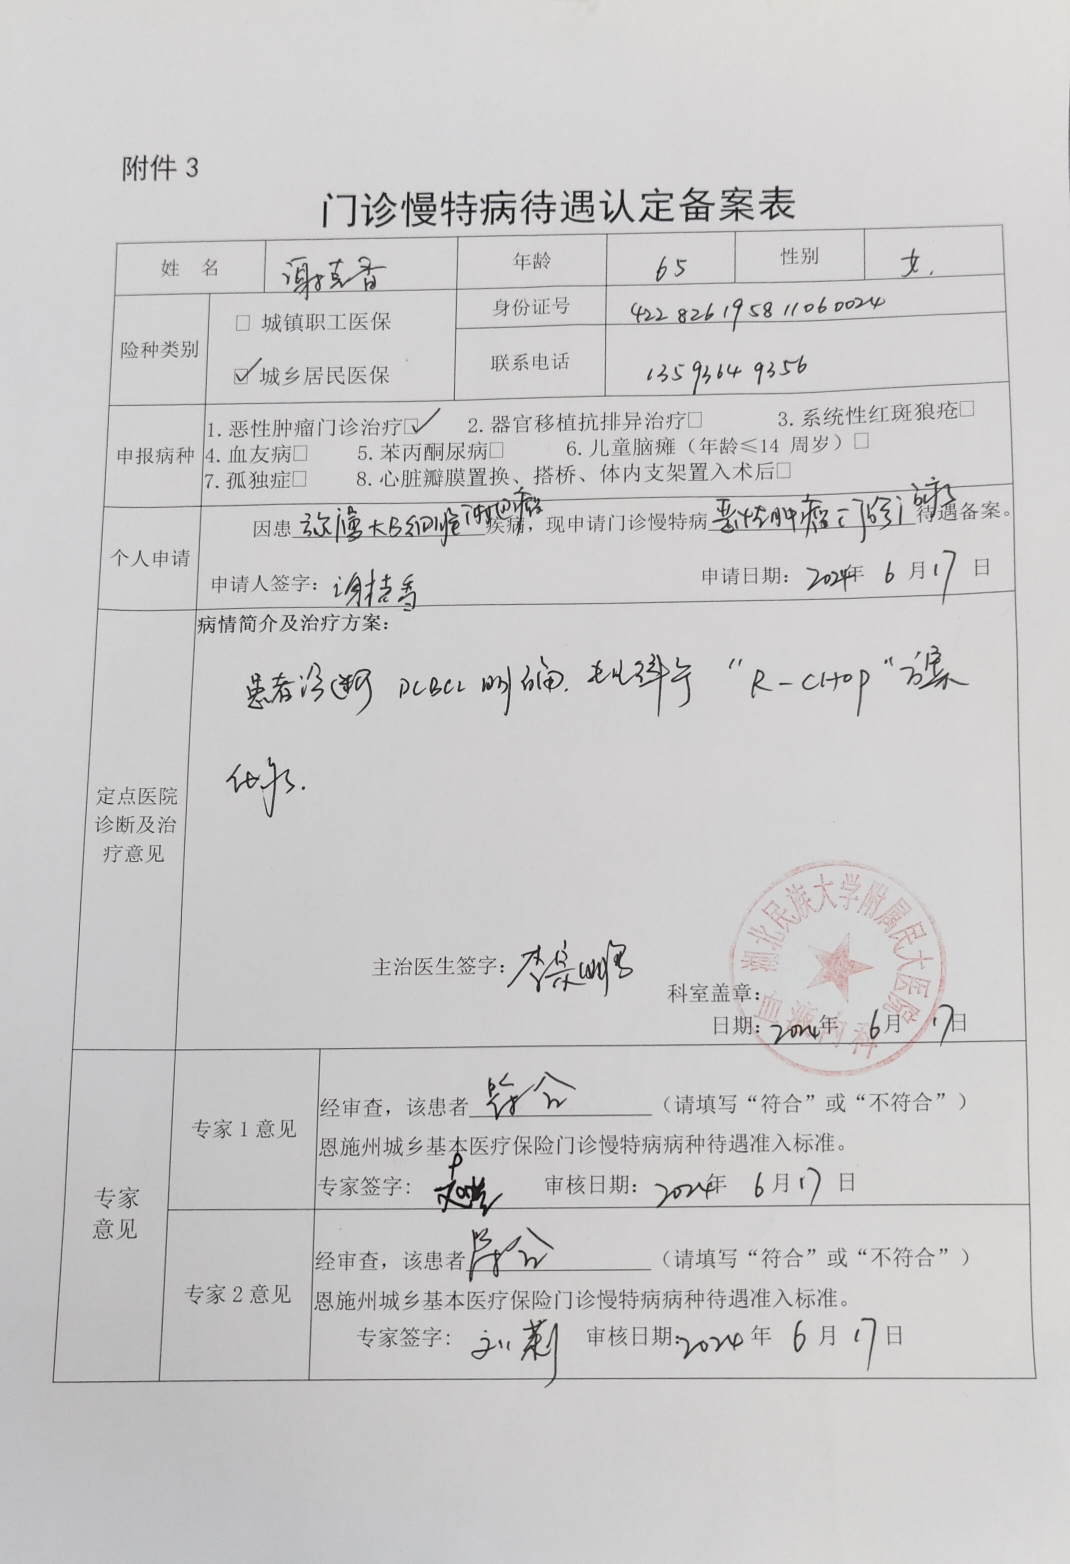 附件 3
门诊慢特病待遇认定备案表
姓 名 年龄 65 性别 女.
险种类别 □ 城镇职工医保 身份证号 422826195811060024
☑ 城乡居民医保 联系电话 13593649356
申报病种 1. 恶性肿瘤门诊治疗☑ 2. 器官移植抗排异治疗□ 3. 系统性红斑狼疮□
4. 血友病□ 5. 苯丙酮尿病□ 6. 儿童脑瘫（年龄≤14 周岁）□
7. 孤独症□ 8. 心脏瓣膜置换、搭桥、体内支架置入术后□
个人申请 因患弥漫大B细胞淋巴瘤疾病，现申请门诊慢特病恶性肿瘤门诊治疗待遇备案。
申请人签字：谢桂香 申请日期：2024年 6 月 17 日
定点医院诊断及治疗意见 病情简介及治疗方案：
患者诊断 DLBCL 明确. “R-CHOP”方案
化疗.
主治医生签字：李
科室盖章：
日期：2024年 6月 17日
湖北民族大学附属民大医院
血液内科
专家意见 专家 1 意见 经审查，该患者符合（请填写“符合”或“不符合”）
恩施州城乡基本医疗保险门诊慢特病病种待遇准入标准。
专家签字： 审核日期：2024年 6月 17 日
专家 2 意见 经审查，该患者符合（请填写“符合”或“不符合”）
恩施州城乡基本医疗保险门诊慢特病病种待遇准入标准。
专家签字： 审核日期：2024 年 6 月 17 日